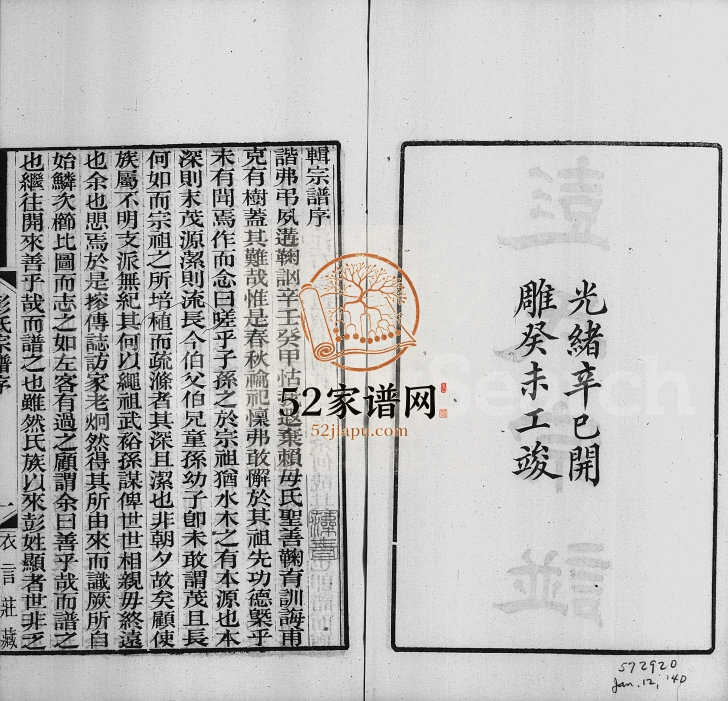 光緒辛巳開
雕癸未工竣
輯宗譜序
諧弗弔夙遘鞠訩辛壬癸甲怙
遐棄賴毋氏聖善鞠育訓誨甫
克有樹蓋其難哉惟是春秋禴祀懍弗敢懈於其祖先功德槩乎
未有聞焉作而念曰嗟乎子孫之於宗祖猶水木之有本源也本
深則末茂源潔則流長今伯父伯兄童孫幼子卽未敢謂茂且長
何如而宗祖之所培植而疏滌者其深且潔也非朝夕故矣顧使
族屬不明支派無紀其何以繩祖武裕孫謀俾世世相親毋終遠
也余也愳焉於是搽傳誌訪家老炯然得其所由來而識厥所自
始鱗次櫛比圖而志之如左客有過之顧謂余曰善乎哉而譜之
也繼往開來善乎哉而譜之也雖然氏族以來彭姓顯者世非之
彭氏宗譜序
一
衣言莊藏
52家谱网
52jiapu.com
572920
Jan. 12, '40